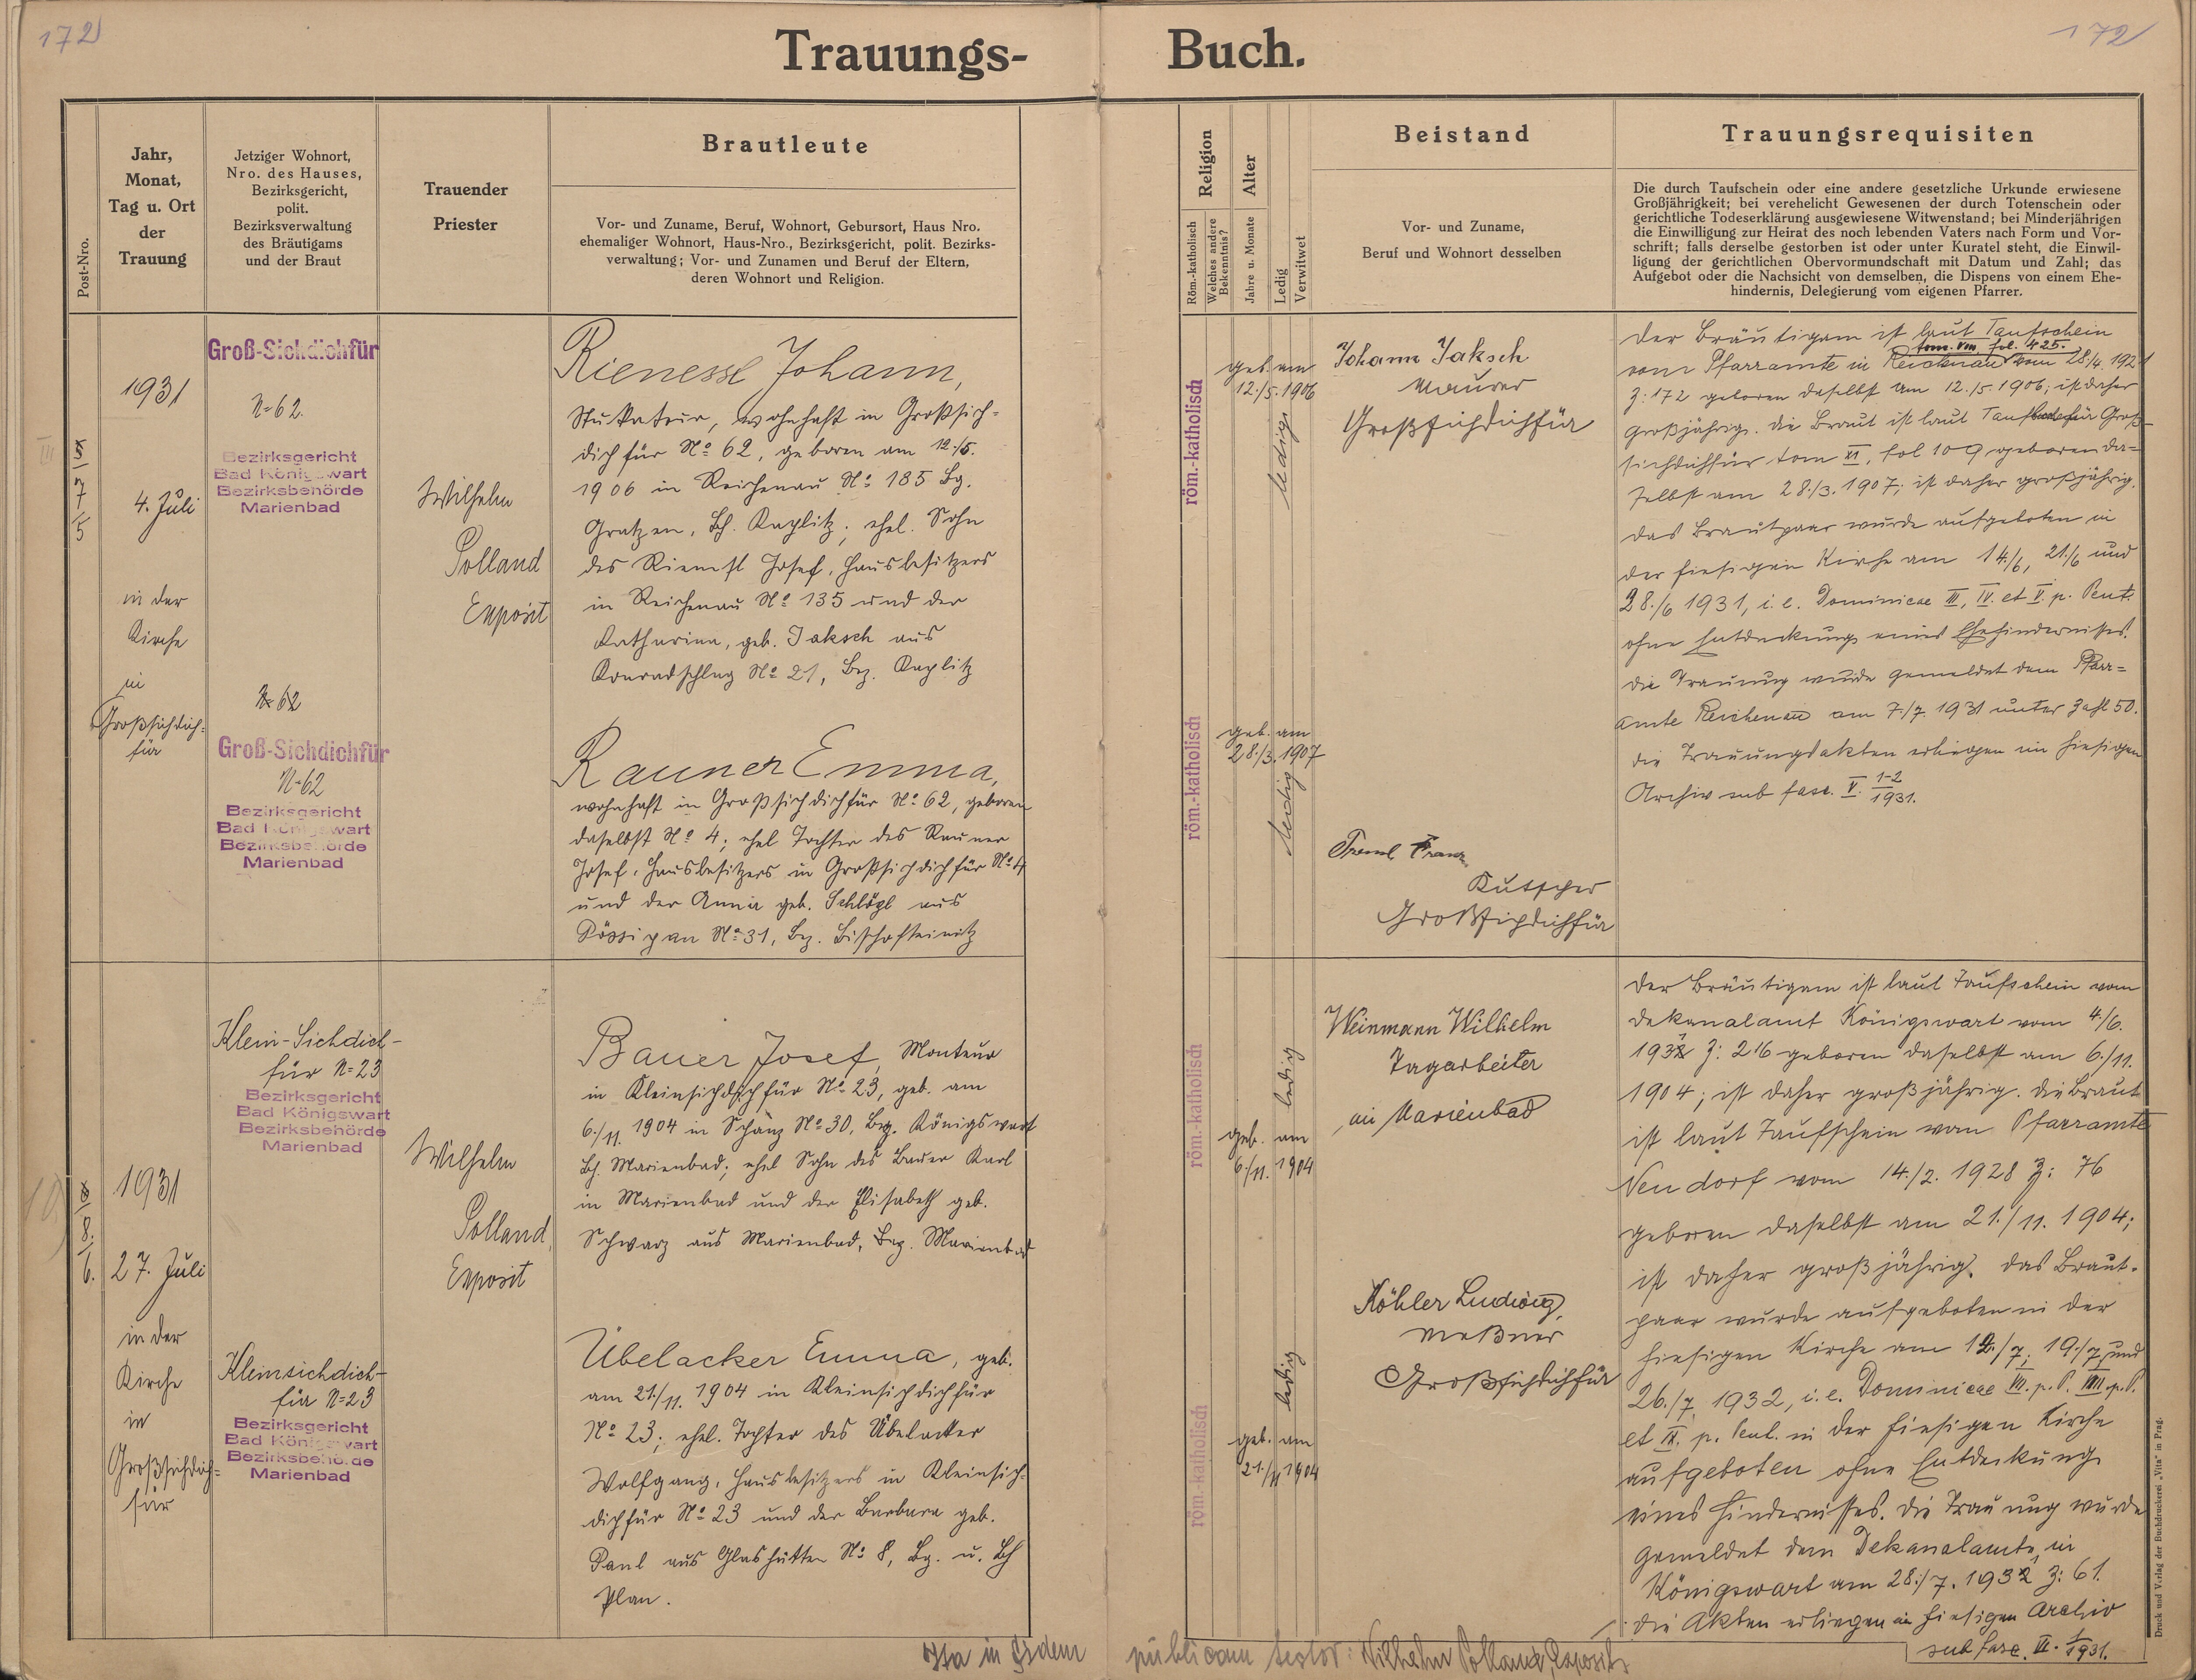 172
172
Trauungs-
Buch.
Post-Nro.
Jahr,
Monat,
Tag u. Ort
der
Trauung
Jetziger Wohnort,
Nro. des Hauses,
Bezirksgericht,
polit.
Bezirksverwaltung
des Bräutigams
und der Braut
Trauender
Priester
Brautleute
Vor- und Zuname, Beruf, Wohnort, Geburtsort, Haus Nro.
ehemaliger Wohnort, Haus-Nro., Bezirksgericht, polit. Bezirks-
verwaltung; Vor- und Zunamen und Beruf der Eltern,
deren Wohnort und Religion.
Religion
Röm.-katholisch
Welches andere
Bekenntnis?
Alter
Jahre u. Monate
Ledig
Verwitwet
Beistand
Vor- und Zuname,
Beruf und Wohnort desselben
Trauungsrequisiten
Die durch Taufschein oder eine andere gesetzliche Urkunde erwiesene
Großjährigkeit; bei verehelicht Gewesenen der durch Totenschein oder
gerichtliche Todeserklärung ausgewiesene Witwenstand; bei Minderjährigen
die Einwilligung zur Heirat des noch lebenden Vaters nach Form und Vor-
schrift; falls derselbe gestorben ist oder unter Kuratel steht, die Einwil-
ligung der gerichtlichen Obervormundschaft mit Datum und Zahl; das
Aufgebot oder die Nachsicht von demselben, die Dispens von einem Ehe-
hindernis, Delegierung vom eigenen Pfarrer.
III
7
5
1931
4. Juli
in der
Kirche
in
Großsichdich-
für
Groß-Sichdichfür
N=62.
Bezirksgericht
Bad Königswart
Bezirksbehörde
Marienbad
N=62
Groß-Sichdichfür
N=62
Bezirksgericht
Bad Königswart
Bezirksbehörde
Marienbad
Wilhelm
Polland
Exposit
Rienessl Johann,
Stukateur, wohnhaft in Großsich-
dichfür No 62, geboren am 12./5.
1906 in Reichenau No 185 Bg.
Gratzen, Bh. Kaplitz; ehel. Sohn
des Rienessl Josef, Hausbesitzers
in Reichenau No 135 und der
Katharina, geb. Jaksch aus
Konradschlag No 21, Bez. Kaplitz
Rauner Emma,
wohnhaft in Großsichdichfür No 62, geboren
daselbst No 4; ehel Tochter des Rauner
Josef, Hausbesitzers in Großsichdichfür No 4
und der Anna geb. Schlögl aus
No 31, Bez. Bischofteinitz
röm.-katholisch
geb. am
12./5. 1906
ledig
röm.-katholisch
geb. am
28./3. 1907
ledig
Johann Jaksch
Maurer
Großsichdichfür
Treml Franz
Kutscher
Großsichdichfür
Der Bräutigam ist laut Taufschein
tom. VIII fol. 425.
vom Pfarramte in Reichenau vom 28./4. 1921
Z: 172 geboren daselbst am 12./5. 1906; ist daher
großjährig. Die Braut ist laut Groß-
sichdichfür tom XI, fol 109 geboren da-
selbst am 28./3. 1907; ist daher großjährig.
Das Brautpaar wurde aufgeboten in
der hiesigen Kirche am 14./6, 21./6 und
28./6 1931, i. e. Dominicae III, IV. et V. p. Pent.
ohne Entdeckung eines Ehehindernisses.
Die Trauung wurde gemeldet dem Pfarr-
amte Reichenau am 7./7. 1931 unter Zahl 50.
Die Trauungsakten erliegen im hiesigen
Archiv sub fasc. V. 1-2/1931.
8.
6.
1931
27. Juli
in der
Kirche
in
Großsichdich-
für
Klein-Sichdich-
für N=23
Bezirksgericht
Bad Königswart
Bezirksbehörde
Marienbad
Kleinsichdich-
für N=23
Bezirksgericht
Bad Königswart
Bezirksbehörde
Marienbad
Wilhelm
Polland,
Exposit
Bauer Josef, Monteur
in Kleinsichdichfür No 23, geb. am
6./11. 1904 in Schanz No 30, Bzg. Königswart
Bh. Marienbad; ehel Sohn des Bauer Karl
in Marienbad und der Elisabeth geb.
Schwarz aus Marienbad, Bez. Marienbad
Übelacker Emma, geb.
am 21./11. 1904 in Kleinsichdichfür
No 23; ehel. Tochter des Übelacker
Wolfgang, Hausbesitzers in Kleinsich-
dichfür No 23 und der Barbara geb.
Paul aus Glashütten No 8, Bg. u. Bh
Plan.
röm.-katholisch
geb. am
6./11. 1904
ledig
röm.-katholisch
geb. am
21./11 1904
ledig
Weinmann Wilhelm
Tagarbeiter
in Marienbad
Köhler Ludwig,
Meßner
Großsichdichfür
Der Bräutigam ist laut Taufschein vom
Dekanalamt Königswart vom 4./6.
Z: 216 geboren daselbst am 6./11.
1904; ist daher großjährig. Die Braut
ist laut Taufschein vom Pfarramte
Neudorf vom 14./2. 1928 Z: 76
geboren daselbst am 21./11. 1904;
ist daher großjährig. Das Braut-
paar wurde aufgeboten in der
hiesigen Kirche am 12./7; 19./7 und
26./7. 1932, i. e. Dominicae VII. p. P. VIII p. P.
et IX. p. Pent. in der hiesigen Kirche
aufgeboten ohne Entdeckung
eines Hindernisses. Die Trauung wurde
gemeldet dem Dekanalamte in
Königswart am 28./7. 1932 Z: 61.
Die Akten erliegen im hiesigen Archiv
sub fasc. VI. 1/1931.
Ita in fidem publicam testor: Wilhelm Polland, Exposit
Druck und Verlag der Buchdruckerei „Vita" in Prag.